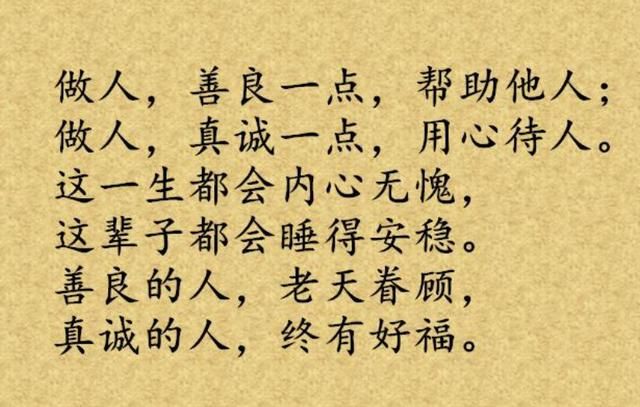 做人，善良一点，帮助他人；
做人，真诚一点，用心待人。
这一生都会内心无愧，
这辈子都会睡得安稳。
善良的人，老天眷顾，
真诚的人，终有好福。